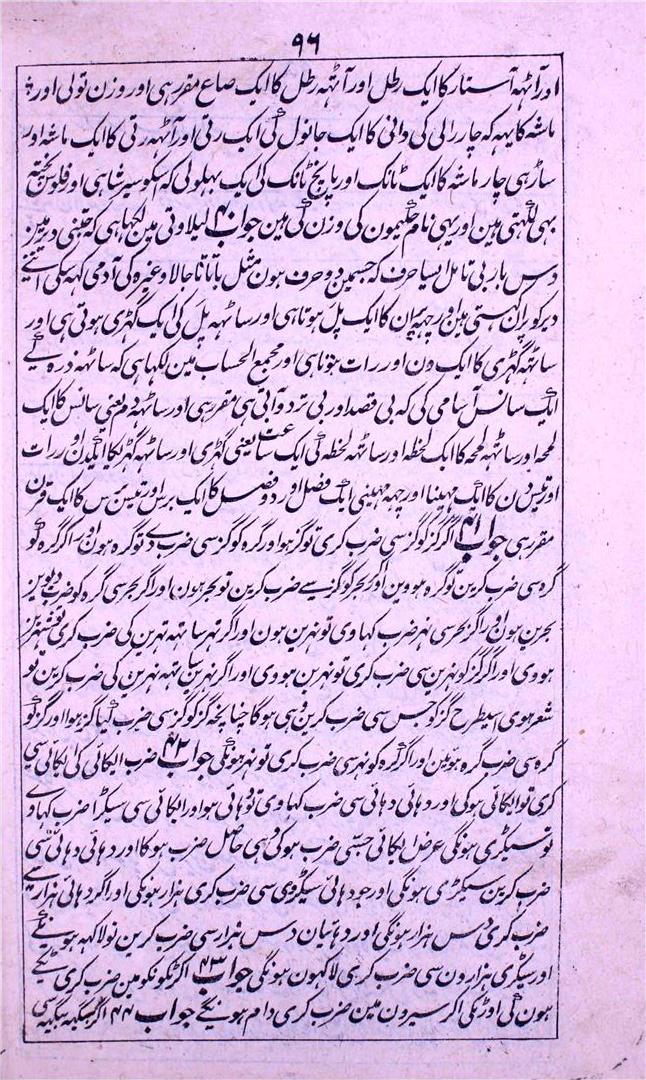 ۹۶
اور آٹہہ آستار کا ایک رطل اور آٹہہ رطل کا ایک صاع مقرر ہی اور وزن تولی اور
ماشہ کا یہہ کہ چار رائی کی دانی کا ایک چانول کی ایک رتی اور آٹہہ رتی کا ایک ماشہ اور
ساڑہی چار ماشہ کا ایک ٹانک اور پانچ ٹانک کی یک بہلولی کہ اسکو سیر شاہی اور فلوس پختہ
بہی کہتی ہین اور یہی نام حکیمون کی وزن کی ہین جواب ۴۰ لیلاوتی مین لکہا ہی کہ جتنی دیر مین
دس بار بی تامل ایسا حرف کہ جسمین دو حرف ہون مثل با تا ثا حا لا وغیرہ کی آدمی کہہ سکی اتنی
دیر کو پران کہتی ہین اور چہہ پران کا ایک پل ہوتا ہی اور ساٹہہ پل کی ایک گہڑی ہوتی ہی اور
ساٹہہ گہڑی کا ایک دن اور رات ہوتا ہی اور مجمع الحساب مین لکہا ہی کہ ساٹہہ ذرہ کی
ایک سانس آسامی کی کہ بی قصد اور بی تردد آتی ہی مقرر ہی اور ساٹہہ دم یعنی سانس کا ایک
لمحہ اور ساٹہہ لمحہ کا ایک لحظہ اور ساٹہہ لحظہ کی ایک ساعت یعنی گہڑی اور ساٹہہ گہڑیکا ایکدن اور رات
اور تیس دن کا ایک مہینا اور چہہ مہینی ایک فصل اور دو فصل کا ایک برس اور تیس برس کا ایک قرن
مقرر ہی جواب ۴۱ اگر گز کو گز سی ضرب کری تو گز ہو اور گرہ کو گز سی ضرب دے تو گرہ ہون اور اگر گرہ کو
گرہ سی ضرب کرین تو گرہ ہووین اور بحر کو گز سے ضرب کرین تو بحر ہون اور اگر بحر سی گرہ کو ضرب دیوین
بحرین ہون اور اگر بحر سی نہر ضرب کہاوی تو نہرین ہون اور اگر نہر ساتہہ نہرین کی ضرب کری تو
ہووی اور اگر گز کو نہرین سی ضرب کری تو نہرین ہووی اور اگر نہرین ساتہہ نہرین کی ضرب کرین تو
شعر ہوی اسیطرح گز کو جس سی ضرب کرین وہی ہوگا چنانچہ گز کو گز سی ضرب کیا گز ہوا اور گز کو
گرہ سی ضرب گرہ ہوئین اور اگر گرہ کو نہر سی ضرب کری تو نہر ہونگی جواب ۴۲ ضرب اکائی کی اکائی سی
کری تو اکائی ہوگی اور دہائی دہائی سی ضرب کہاوی تو دہائی ہو اور اکائی سی سیکڑا ضرب کہاوے
تو سیکڑی ہونگی غرض اکائی جسی ضرب ہوگی وہی حاصل ضرب ہوگا اور دہائی دہائی سی
ضرب کرین سیکڑی ہونگی اور جو دہائی سیکڑوی سی ضرب کری ہزار ہونگی اور اگر دہائی ہزار سے
ضرب کری دس ہزار ہونگی اور دہائیان دس ہزار سی ضرب کرین تو لاکہہ ہونگے
اور سیکڑی ہزارون سی ضرب کری لاکہون ہونگی جواب ۴۳ اگر ٹکونکو مین ضرب کری ٹکے
ہون گی اور ٹکی اگر سیرون مین ضرب کری دام ہونگے جواب ۴۴ اگر بیگہہ بیگہہ سی